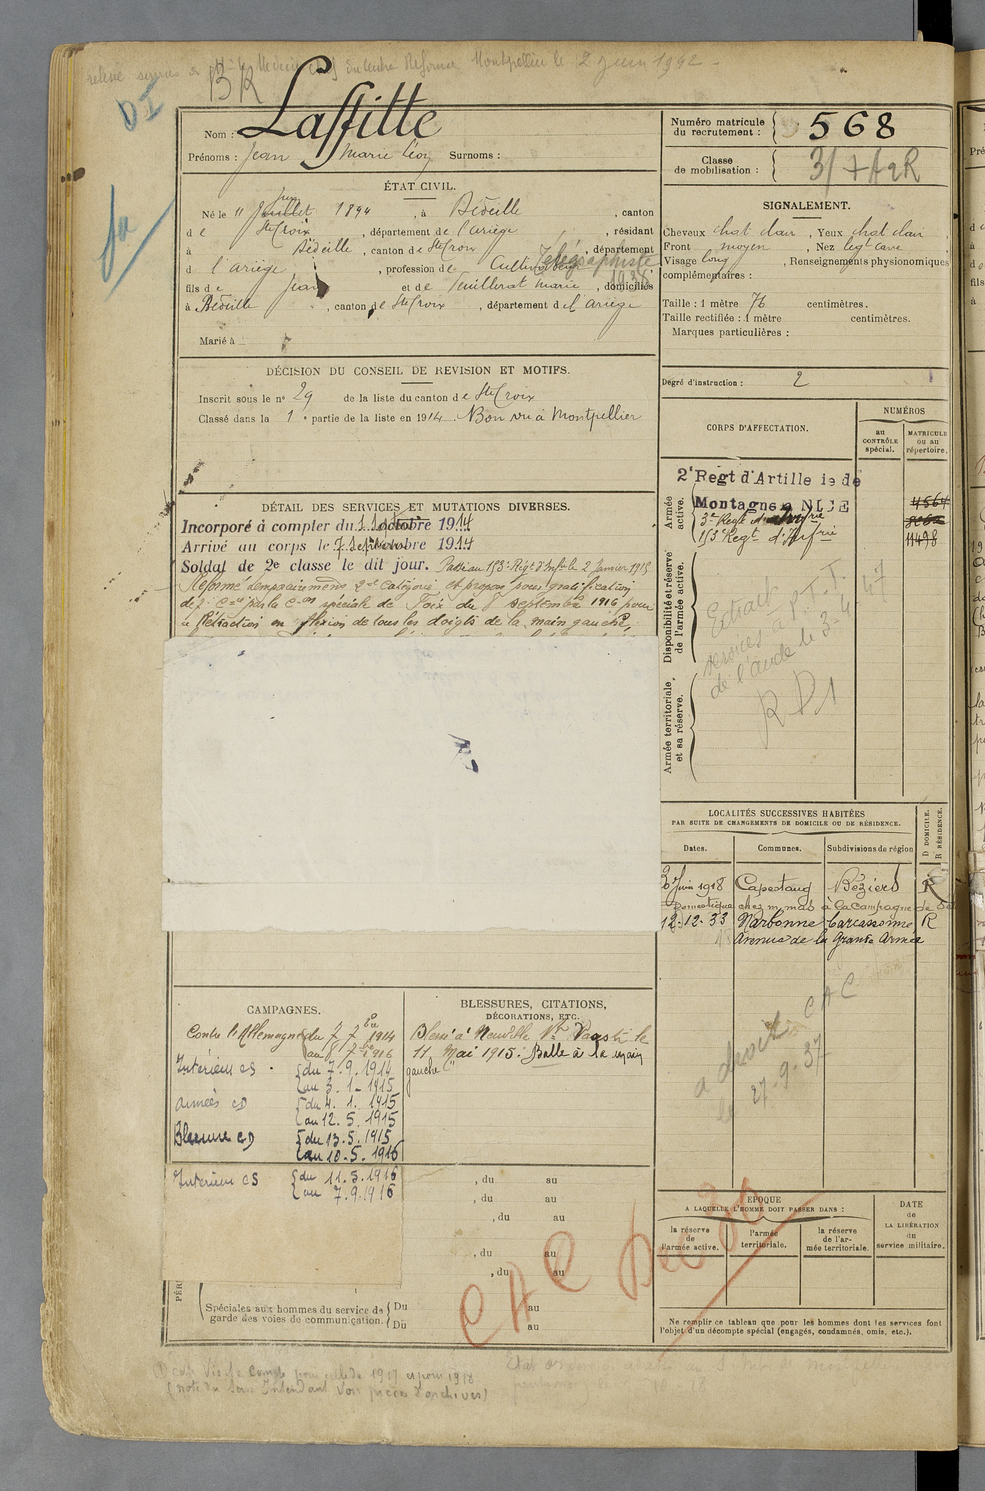 relevé services Médecin chef du Centre Réforme Montpellier le 2 juin 1942
BR
DI
Laffitte
Nom :
Prénoms : Jean Marie Léon Surnoms :
Numéro matricule du recrutement : 568
Classe de mobilisation : 3/
ÉTAT CIVIL.
Né le 11 Juillet juin 1894, à Bédeille, canton
de Ste Croix, département de l'ariège, résidant
à Bédeille, canton de Ste Croix, département
d l'ariège, profession de Cultivateur Télégraphiste 1938
fils de Jean et de marie, domiciliés
à Bédeille, canton de Ste Croix, département d l'ariège
Marié à
SIGNALEMENT.
Cheveux chat clair, Yeux chat clair
Front moyen, Nez legt cave
Visage long, Renseignements physionomiques
complémentaires :
Taille : 1 mètre 76 centimètres.
Taille rectifiée : 1 mètre centimètres.
Marques particulières :
Degré d'instruction : 2
DÉCISION DU CONSEIL DE REVISION ET MOTIFS.
Inscrit sous le n° 29 de la liste du canton de Ste Croix
Classé dans la 1e partie de la liste en 1914. Bon vu à Montpellier
CORPS D'AFFECTATION.
NUMÉROS
au CONTRÔLE spécial.
MATRICULE ou au répertoire.
Armée active.
2e Regt d'Artillerie de
Montagne a NICE
3e Regt
153e Regt d'Infrie
11498
Disponibilité et réserve de l'armée active.
Extrait
services à P.T.T.
de l'aude le 3-4 47
RD1
Armée territoriale et sa réserve.
DÉTAIL DES SERVICES ET MUTATIONS DIVERSES.
Incorporé à compter du octobre 1914
Arrivé au corps le 7 septembre 1914
Soldat de 2e classe le dit jour. Passé au 153e Régt d'Inf le 2 janvier 1915
Réformé temporairement 2e catégorie et proposé pour gratification
de par la Con spéciale de Foix du 8 septembre 1916 pour
Rétraction en flexion de tous les doigts de la main gauche,
LOCALITÉS SUCCESSIVES HABITÉES
PAR SUITE DE CHANGEMENTS DE DOMICILE OU DE RÉSIDENCE.
Dates. Communes. Subdivisions de région
D DOMICILE. R RÉSIDENCE.
Juin 1918 Capestang Béziers R
Domestique chez m. mas à la Campagne de
12-12-33 Narbonne Carcassonne R
Avenue de la grande Armée
CAC
a droit
27-9-37
CAMPAGNES.
Contre l'Allemagne du 7 7bre 1914
au 8 7bre 1916
Intérieur CS { du 7.9.1914
au 3.1.1915
armées CD { du 4.1.1915
au 12.5.1915
Blessure CD { du 13.5.1915
au 10.5.1916
Intérieur CS { du 11.5.1916
au 7.9.1916
BLESSURES, CITATIONS,
DÉCORATIONS, ETC.
Blessé à Neuville St Vaast le
11 Mai 1915. Balle à la main
gauche
, du au
, du au
, du au
, du au
, du au
Spéciales aux hommes du service de garde des voies de communication. { Du au
Du au
CAC Dec 30
ÉPOQUE
A LAQUELLE L'HOMME DOIT PASSER DANS :
la réserve de l'armée active.
l'armée territoriale.
la réserve de l'armée territoriale.
DATE de LA LIBÉRATION du service militaire.
Ne remplir ce tableau que pour les hommes dont les services font
l'objet d'un décompte spécial (engagés, condamnés, omis, etc.).
(note du Sous Intendant Voir pièces d'archives)